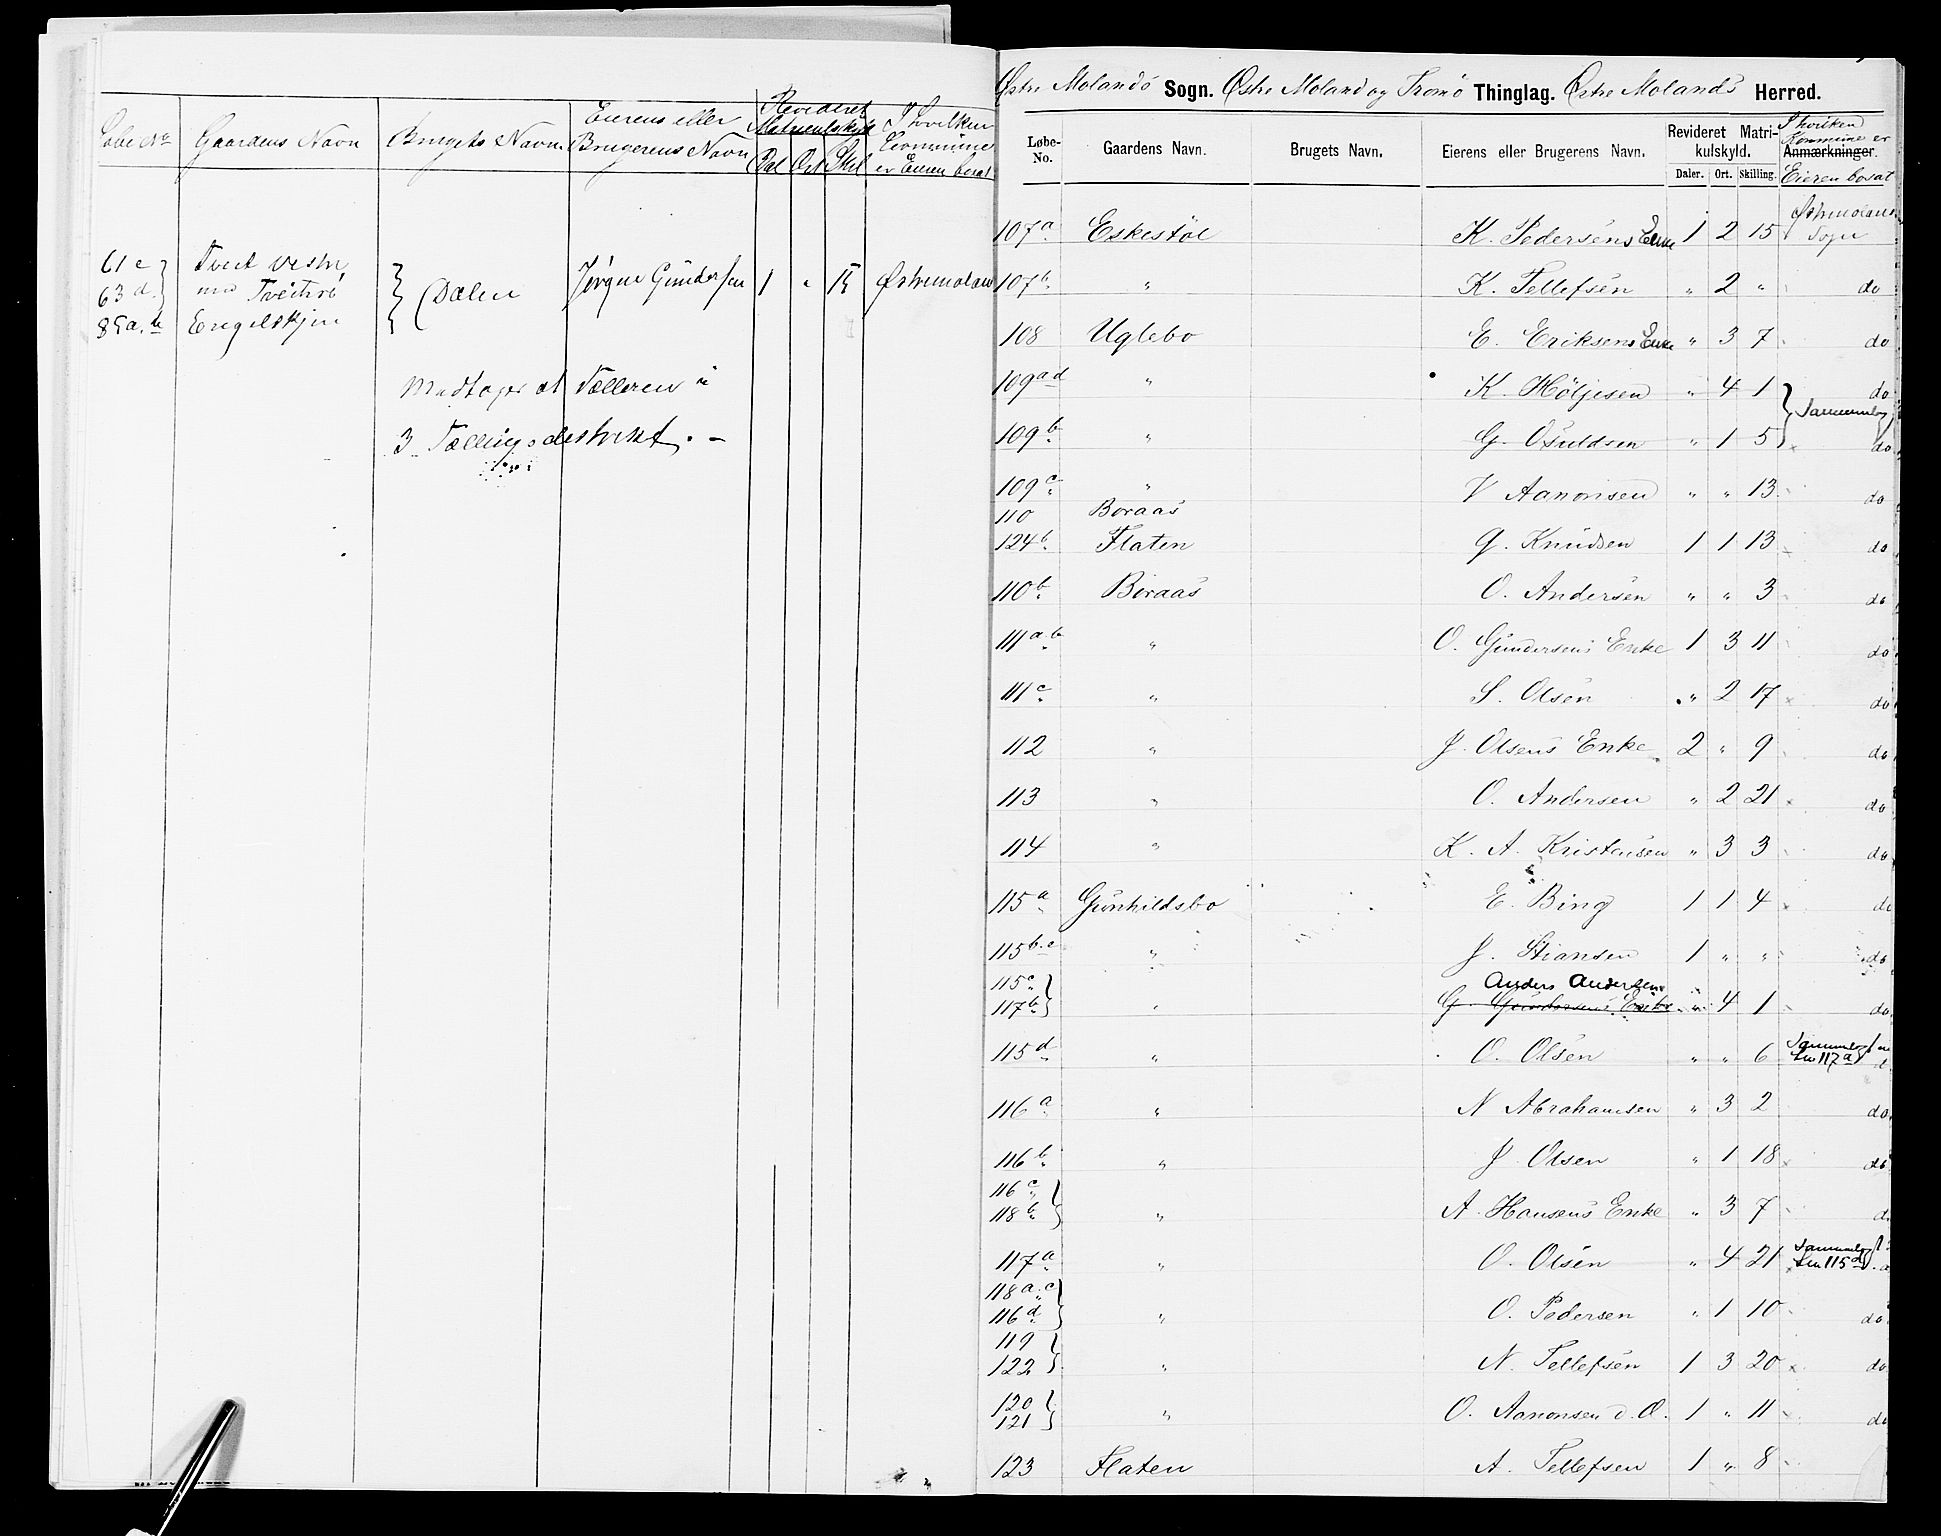 Løbe No Gaardens Navn Brugets Navn Eierens eller Brugerens Navn Revideret Matrikulskyld Dal Ort Skil I hvilken Commune er Eieren bosat
61 c Tveit vestre
63 d. med Tveiten Dalen Jørgen Gundersen 1 " 15 Østremoland
85 a. b Engelskjen
Medtages af Tælleren i
3 Tællingsdestrikt. -
Østre Molands Sogn. Østre Moland og Tromø Thinglag. Østre Molands Herred.
Løbe-No. Gaardens Navn. Brugets Navn. Eierens eller Brugerens Navn. Revideret Matrikulskyld. Daler. Ort. Skilling. Anmærkninger. I hvilken Kommune er Eieren bosat
107a. Eskestøl K. Pedersens Enke 1 2 15 Østremolands Sogn
107b. " K. Tellefsen " 2 " do
108 Uglebo E. Eriksens Enke " 3 7 do
109a d " K. Høljesen " 4 1 do
Sammenlag
109b. " G. Osuldsen " 1 5 do
109c. " V Aanonsen " " 13 do
110 Boraas
124b. Flaten G. Knudsen 1 1 13 do
110b. Boraas O. Andersen " " 3 do
111a.b. " O. Gundersens Enke 1 3 11 do
111c. " S. Olsen " 2 17 do
112 " J. Olsens Enke 2 " 9 do
113 " O. Andersen " 2 21 do
114 " K. A. Kristensen " 3 3 do
115a. Gunhildsbo E. Bing 1 1 4 do
115b.e " J. Stiansen 1 " " do
115c. Anders Andersen
117b. " G. Gundersens Enke " 4 1 do
115d. " O. Olsen " " 6 Sammenlag 117a
116a. " N Abrahamsen " 3 2 do
116b. " J. Olsen " 1 18 do
116c.
118b. " A. Hansens Enke " 3 7 do
117a. " O. Olsen " 4 21 Sammenlag 115d
118a.c
116d. " O. Pedersen " 1 10 do
119
122 " N. Tellefsen 1 3 20 do
120
121 " O. Aanonsen d. O. 1 " 11 do
123 Flaten A. Tellefsen 1 " 8